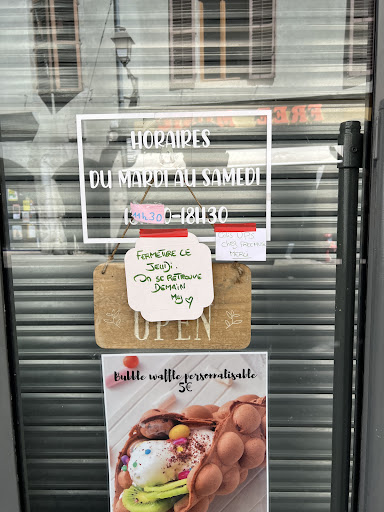 HORAIRES
DU MARDI AU SAMEDI
-18H30
FERMETURE CE
JEUDI.
ON SE RETROUVE
DEMAIN
OPEN
Bubble waffle personnalisable
5€